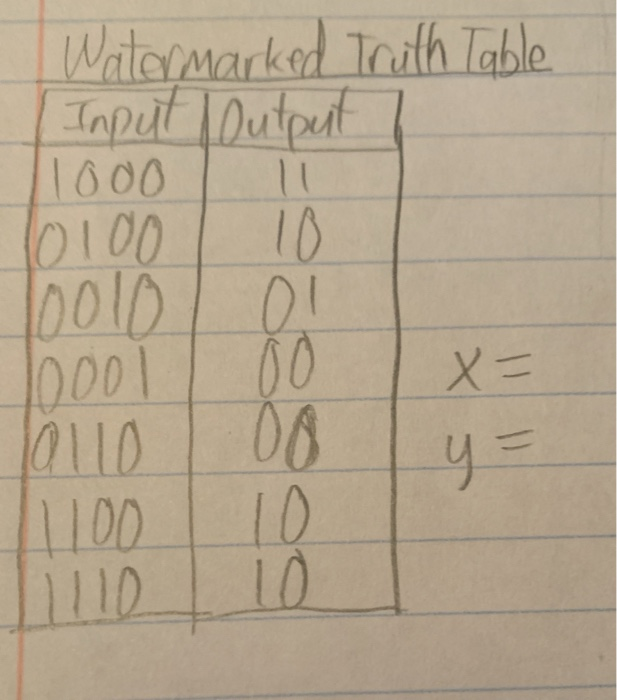 Watermarked Truth Table
Input Output
1000 11
0100 10
0010 01
0001 00
0110 00
1100 10
1110 10
x =
y =